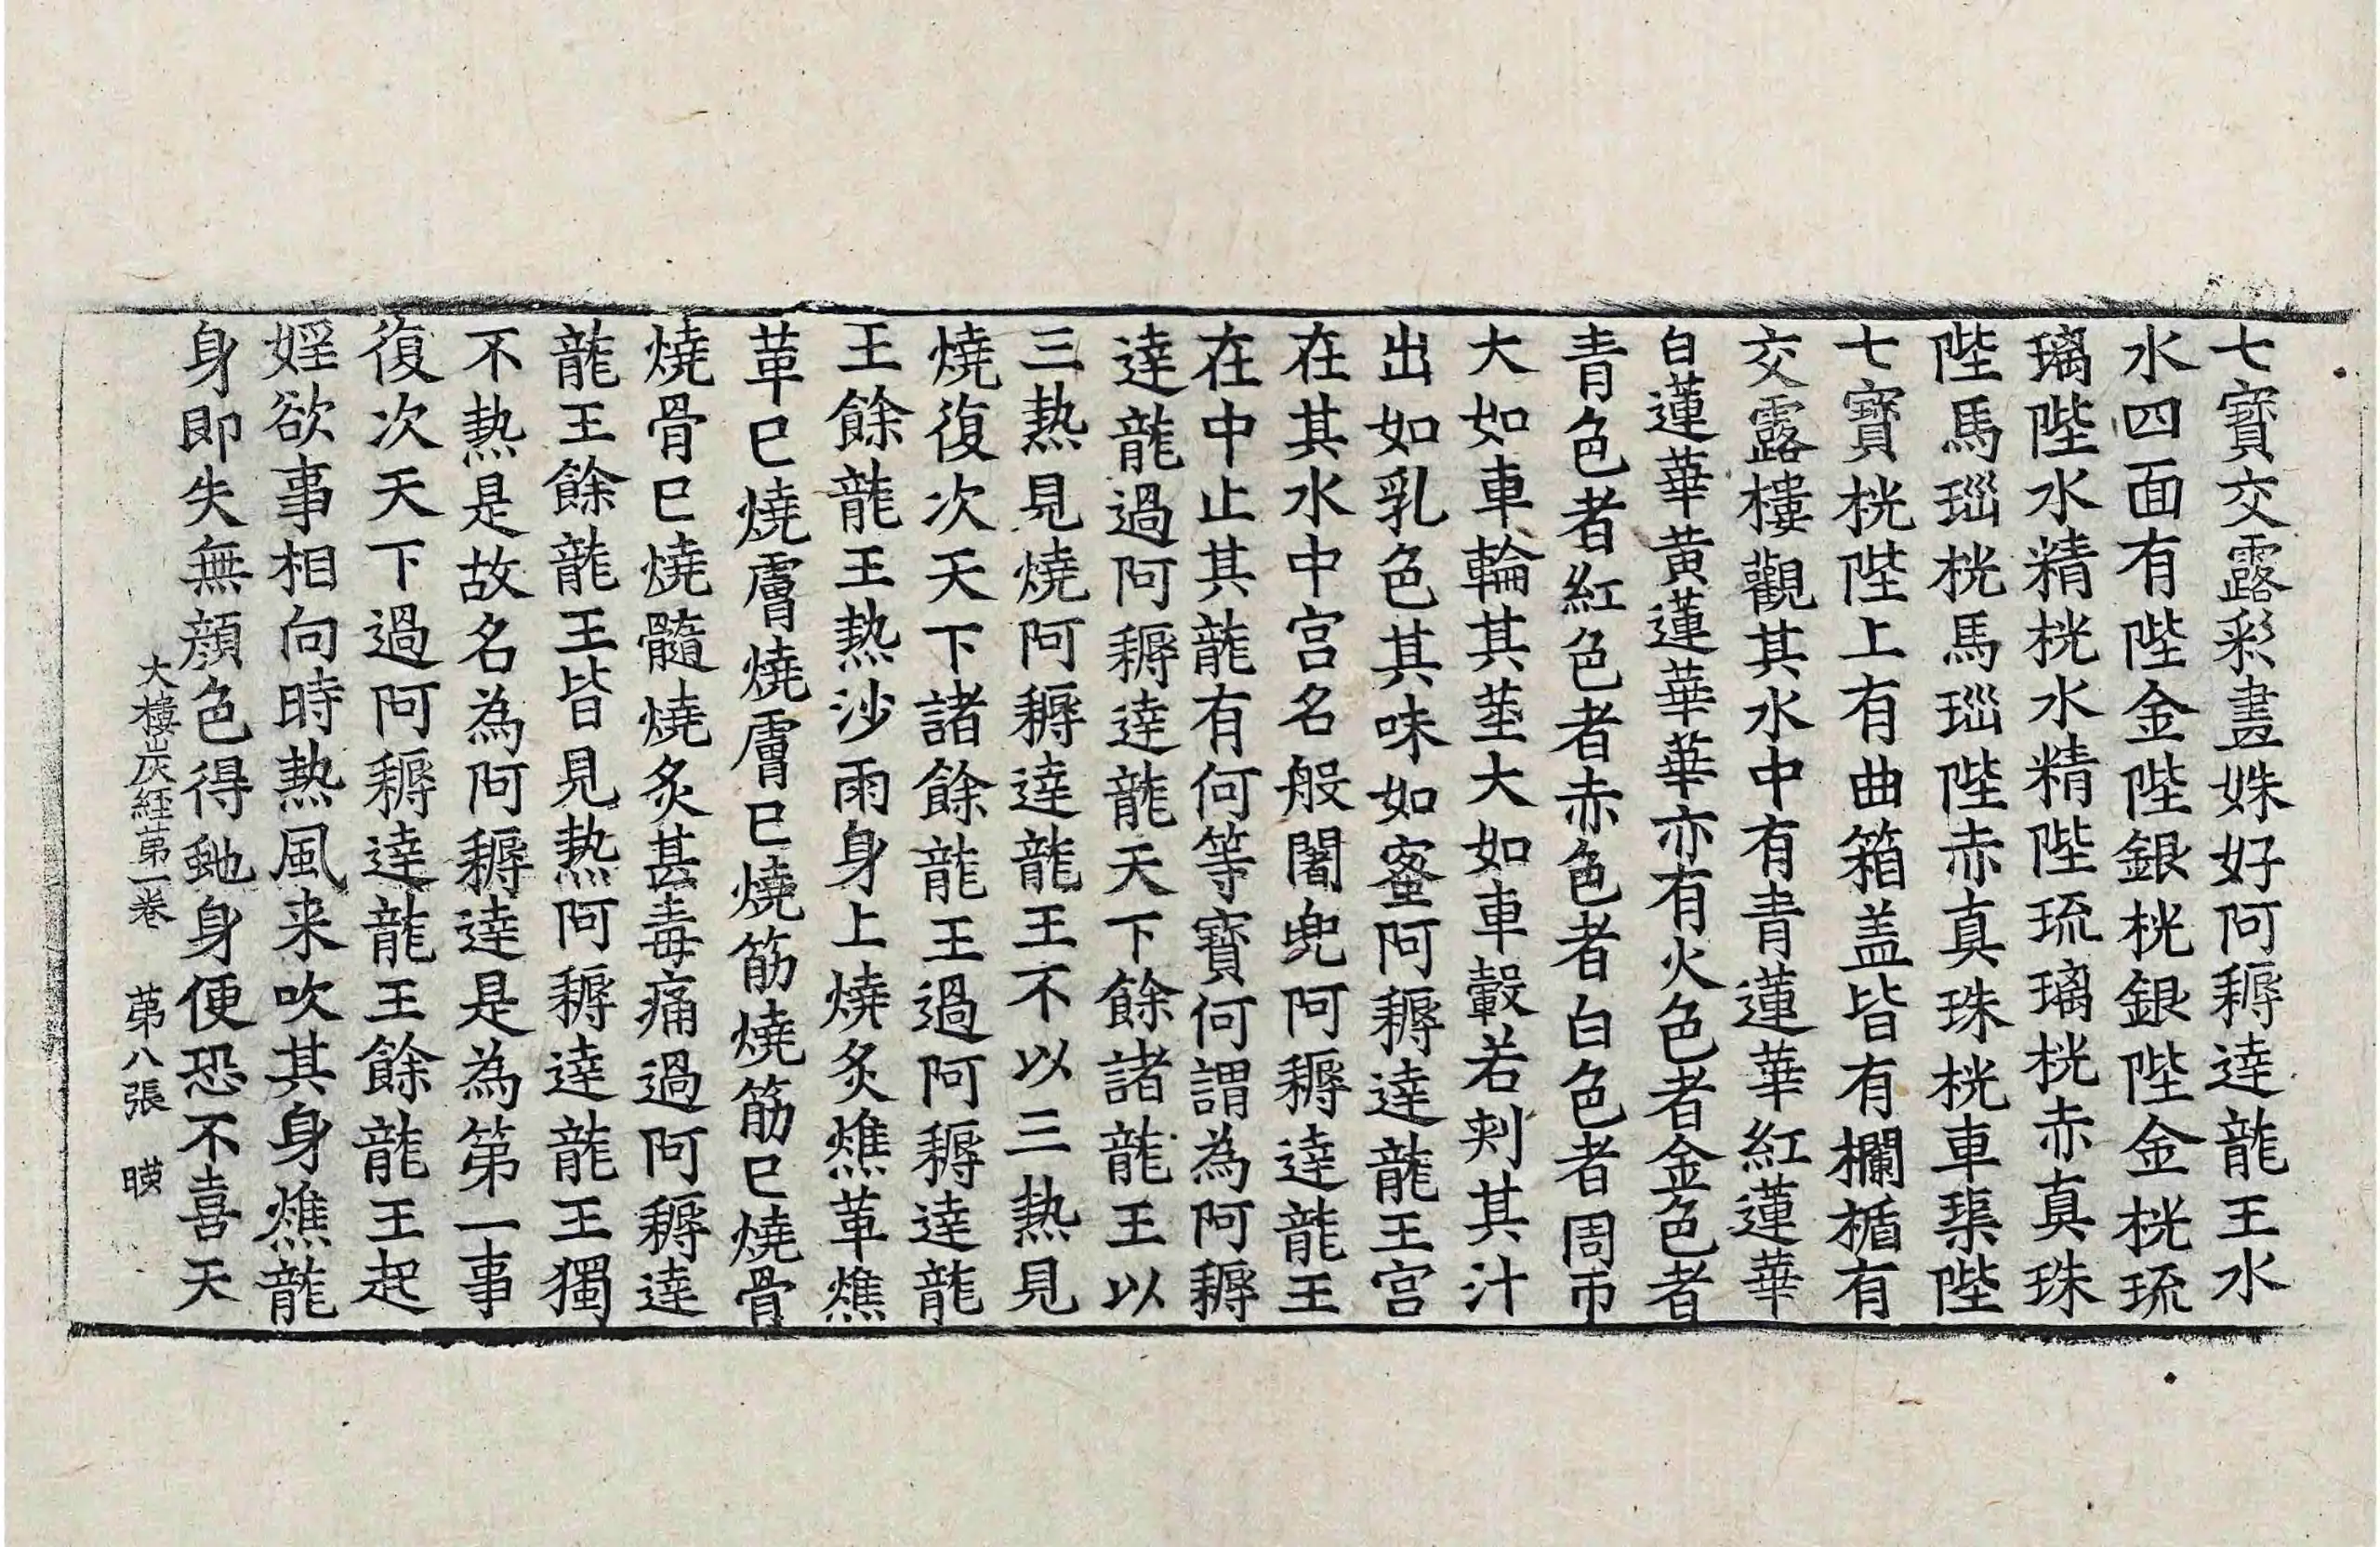 七寶交露彩畫姝好阿耨達龍王水
水四面有陛金陛銀桄銀陛金桄琉
璃陛水精桄水精陛琉璃桄赤真珠
陛馬瑙桄馬瑙陛赤真珠桄車璖陛
七寶桄陛上有曲箱盖皆有欄楯有
交露樓觀其水中有青蓮華紅蓮華
白蓮華黄蓮華華亦有火色者金色者
青色者紅色者赤色者白色者周帀
大如車輪其莖大如車轂若刾其汁
出如乳色其味如蜜阿耨達龍王宮
在其水中宮名般闍兜阿耨達龍王
在中止其龍有何等寶何謂為阿耨
達龍過阿耨達龍天下餘諸龍王以
三熱見燒阿耨達龍王不以三熱見
燒復次天下諸餘龍王過阿耨達龍
王餘龍王熱沙雨身上燒炙燋革燋
革已燒膚燒膚已燒筋燒筋已燒骨
燒骨已燒髓燒炙甚毒痛過阿耨達
龍王餘龍王皆見熱阿耨達龍王獨
不熱是故名為阿耨達是為第一事
復次天下過阿耨達龍王餘龍王起
婬欲事相向時熱風来吹其身燋龍
身即失無顔色得虵身便恐不喜天
大樓炭経苐一卷 苐八張 暎